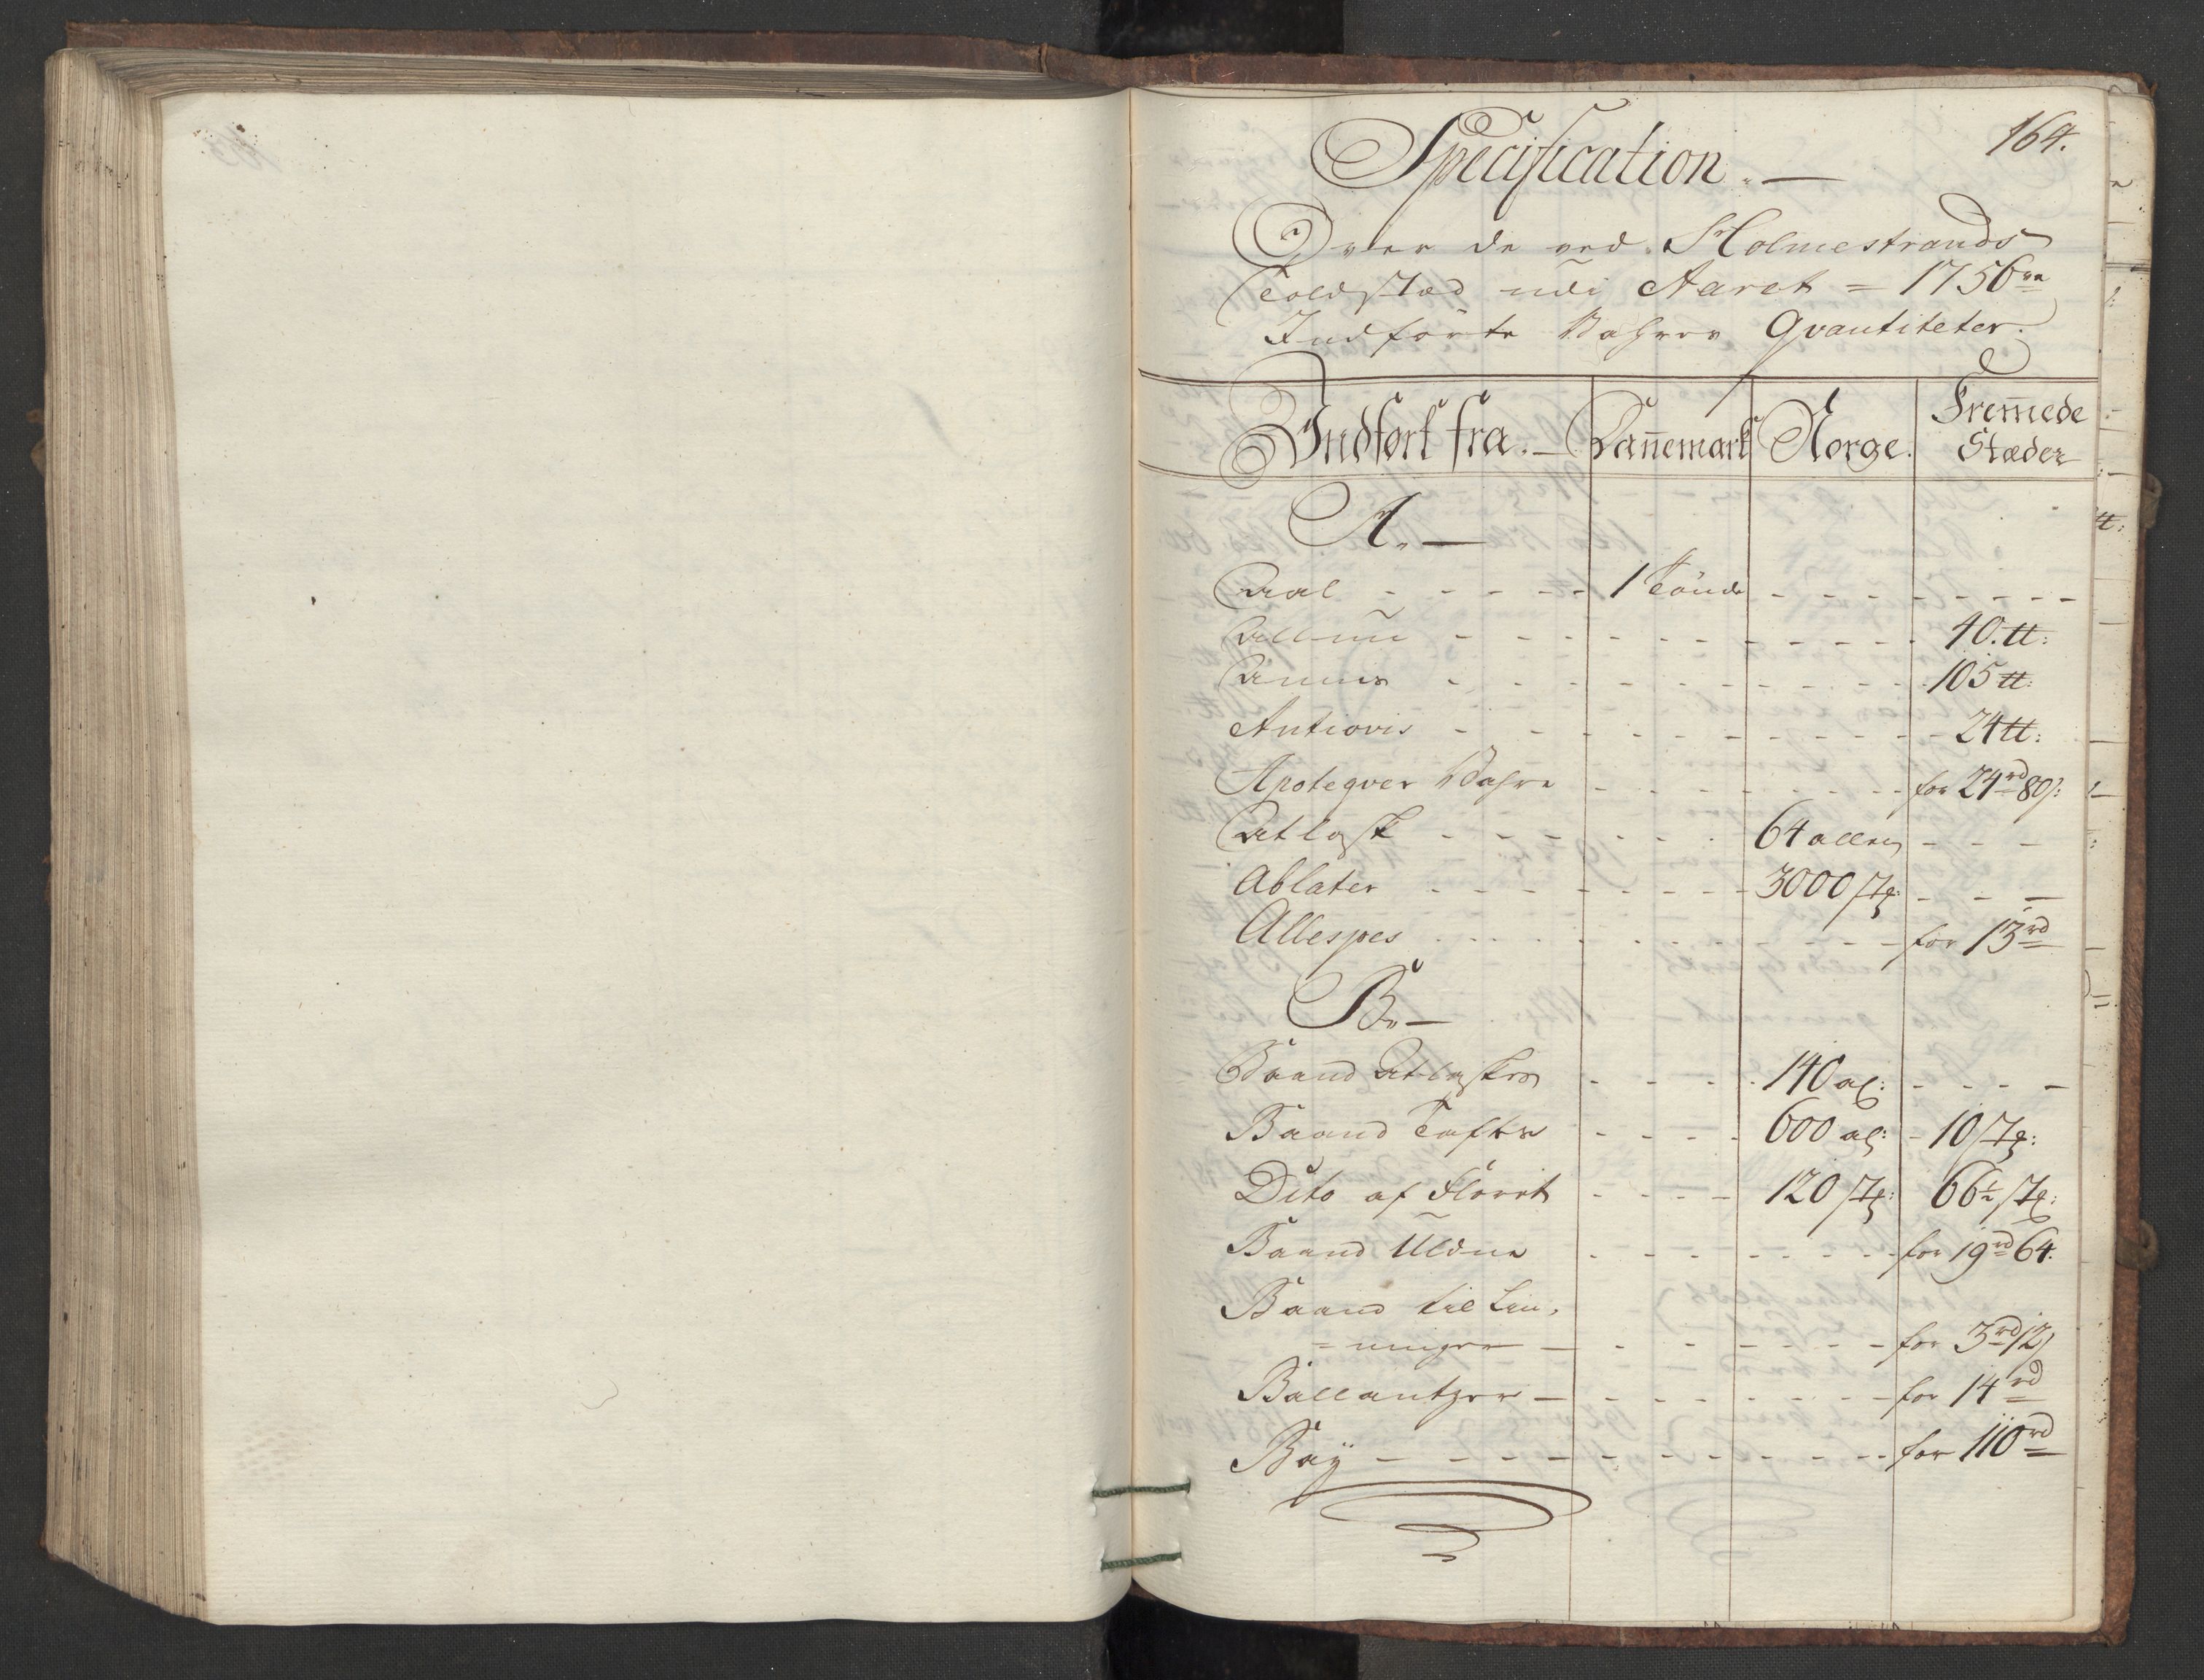 164.
Specification.—
Over de ved Holmestrands
Toldstæd udi Aaret = 1756ve
Indførte Vahres Qvantiteter.
Indført fra.— Dannemark Norge. Fremmede Stæder
A.—
Aal - - - - - 1 Tönde - - - - - - -
Allun - - - - - - - - - - 40. tt:
Annis - - - - - - - - - - 105 tt:
Antiovis - - - - - - - - - - 24 tt:
Apoteqver Vahre - - - - - - - - for 24 rd 80 s:
Atlask - - - - - - - 64 allen - - -
Ablater - - - - - - - - 3000 st: - - -
Allespes - - - - - - - - - - for 13 rd
B.—
Baand Atlaskes - - - - 140 al: - - - -
Baand Tafts - - - - 600 al: - 10 st:
Dito af Floret - - - - 120 st: 66½ st:
Baand Uldne - - - - - - - - for 19 rd 64.
Baand til Lin,
= ninger — - - - - - - - for 3 rd 12 s
Ballantzer — - - - - - - - for 14 rd
Baÿ — - - - - - - - - - - for 110 rd